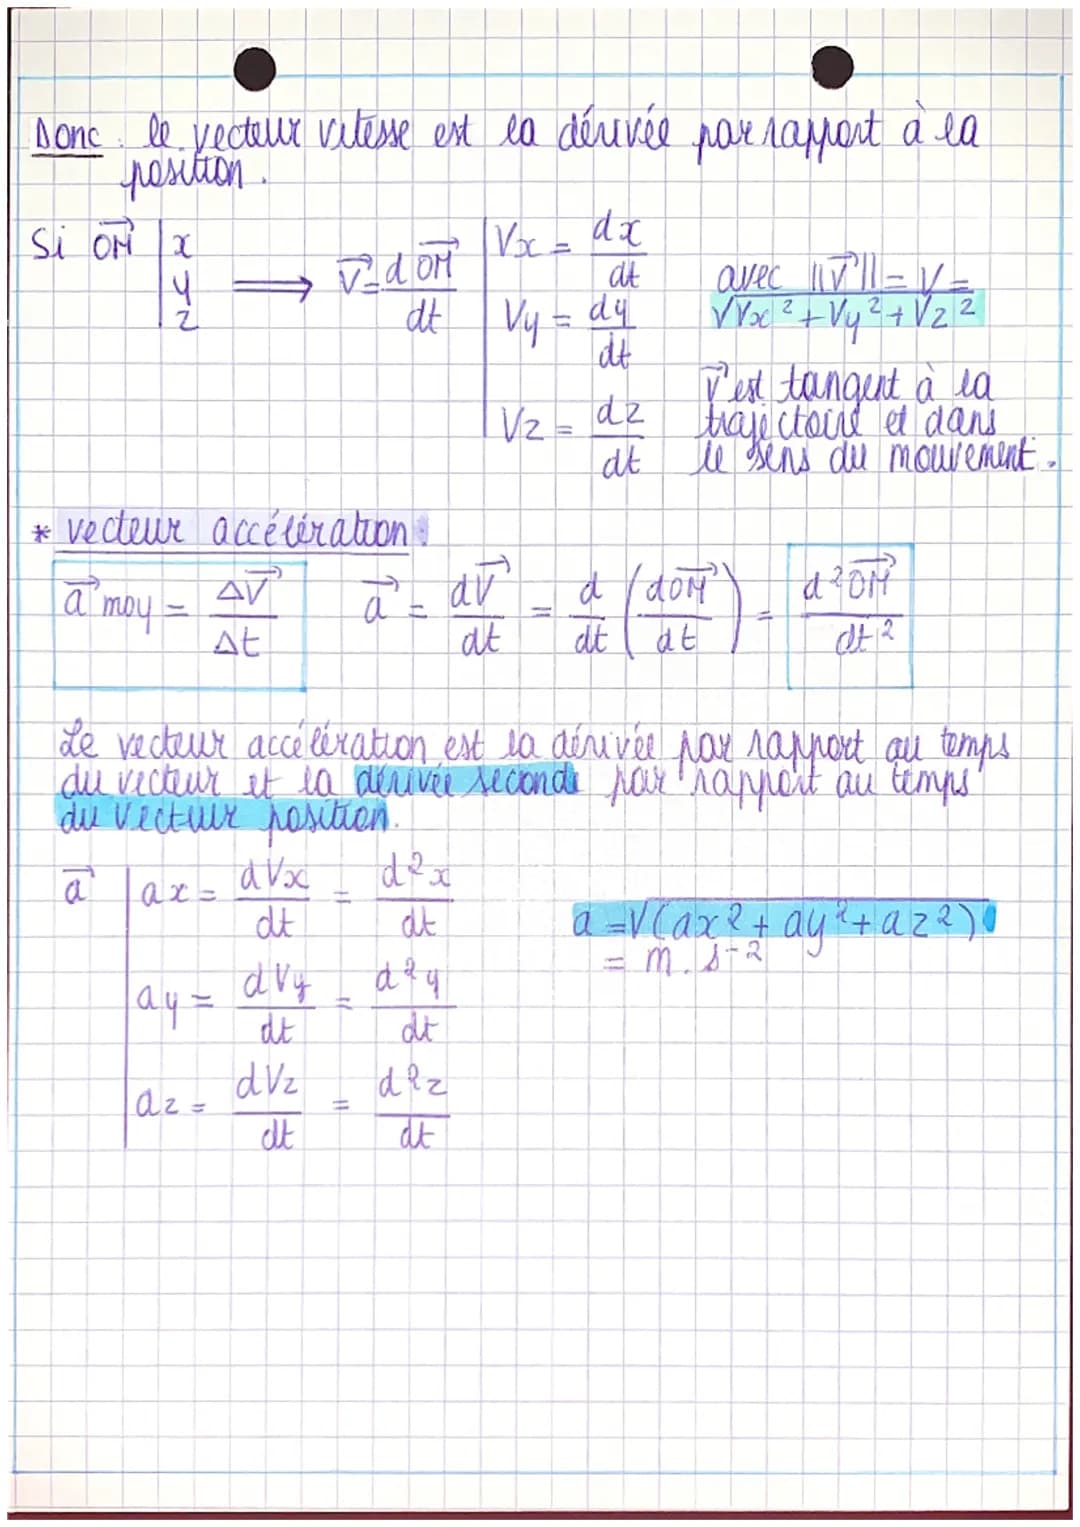 Donc : le vecteur vitesse est la dérivée par rapport à la
position.
Si OM⃗ | x y z ⟹ V⃗ = dOM⃗/dt | Vx = dx/dt
Vy = dy/dt
Vz = dz/dt
avec ||V⃗|| = V =
√Vx² + Vy² + Vz²
V⃗ est tangent à la
trajectoire et dans
le sens du mouvement.
* vecteur accélération :
a⃗ moy = ΔV⃗/Δt a⃗ = dV⃗/dt = d/dt (dOM⃗/dt) = d²OM⃗/dt²
Le vecteur accélération est la dérivée par rapport au temps
du vecteur et la dérivée seconde par rapport au temps
du vecteur position.
a⃗ | ax = dVx/dt = d²x/dt
ay = dVy/dt = d²y/dt
az = dVz/dt = d²z/dt
a = √(ax² + ay² + az²)
= m.s⁻²